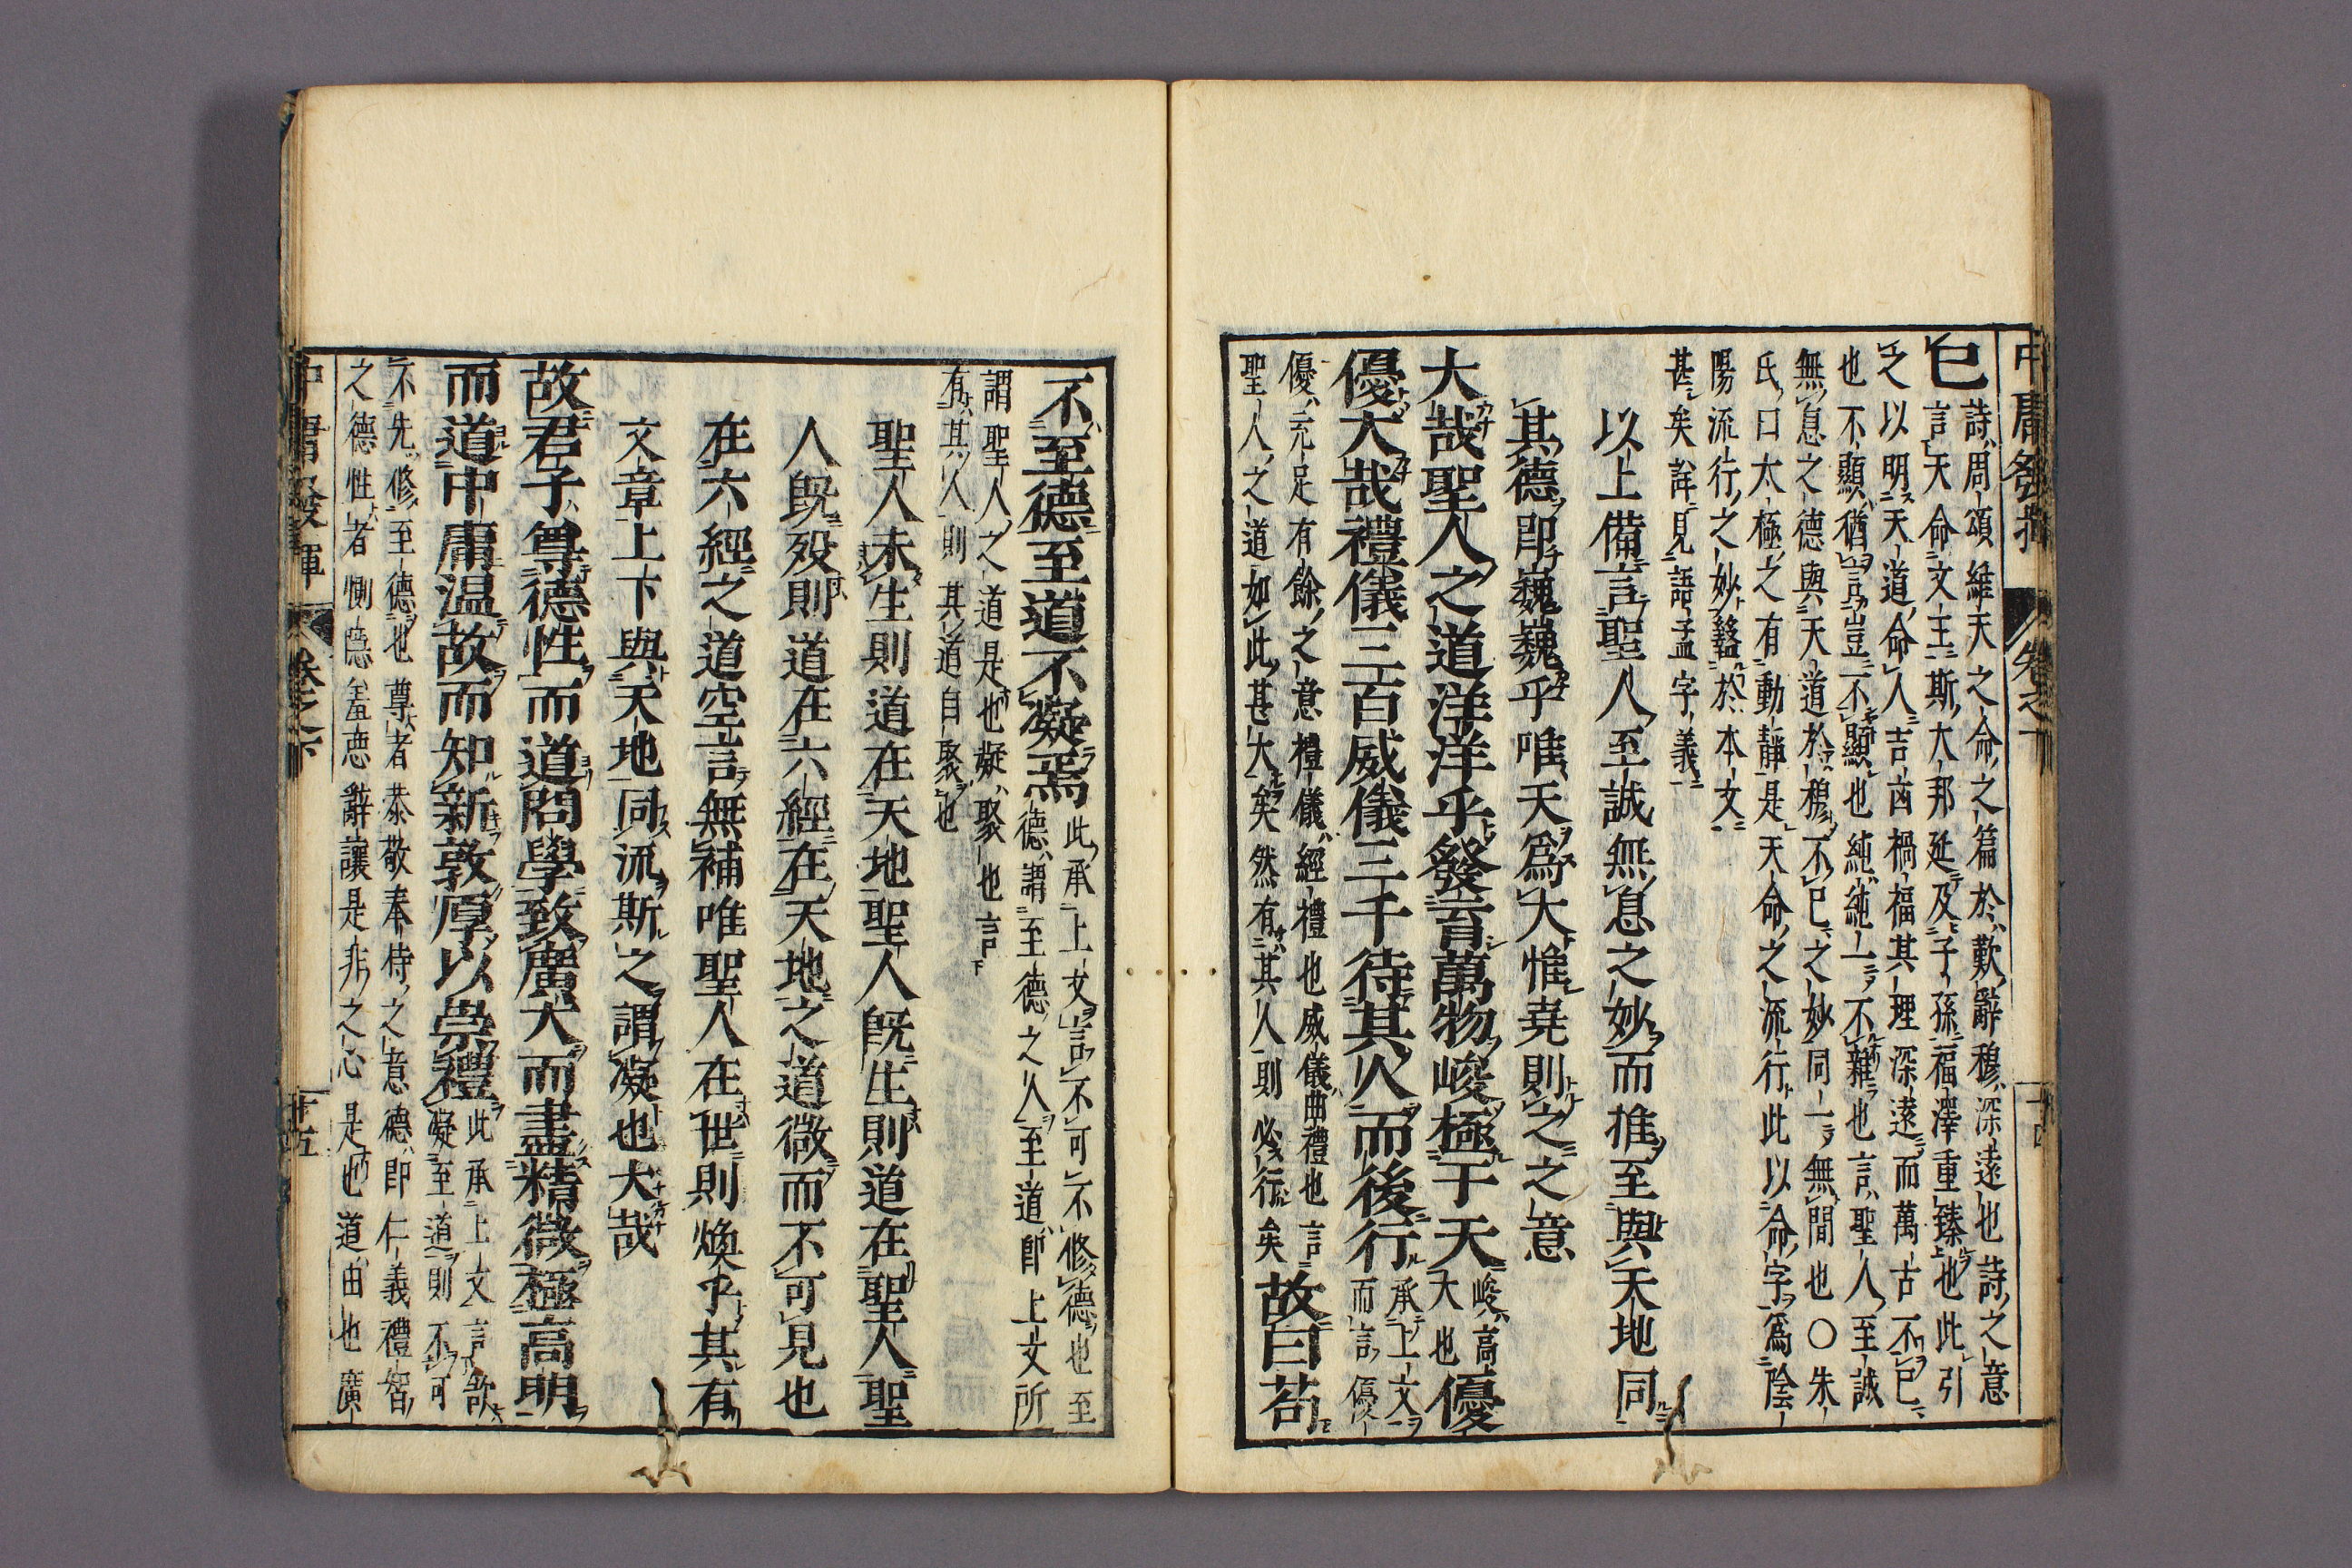 中庸發揮 卷之下 十四
已
詩周頌維天之命之篇於歎辭穆深遠也詩之意
言天命文王斯大邦延及子孫福澤重臻也此引
之以明天道命人吉凶禍福其理深遠而萬古不已
也不顯猶言豈不顯也純純一不雜也言聖人至誠
無息之德與天道於穆不已之妙同一無間也〇朱
氏曰太極之有動靜是天命之流行此以命字爲陰
陽流行之妙盭於本文
甚矣詳見語孟字義
以上備言聖人至誠無息之妙而推至與天地同
其德即巍巍乎唯天爲大惟堯則之之意
大哉聖人之道洋洋乎發育萬物峻極于天
峻高
大也
優
優大哉禮儀三百威儀三千待其人而後行
承上文
而言優
優充足有餘之意禮儀經禮也威儀曲禮也言
聖人之道如此甚大矣然有其人則必行矣
故曰苟
不至德至道不凝焉
此承上文言不可不修德也至
德謂至德之人至道即上文所
謂聖人之道是也凝聚也言
有其人則其道自聚也
聖人未生則道在天地聖人既生則道在聖人聖
人既歿則道在六經在天地之道微而不可見也
在六經之道空言無補唯聖人在世則煥乎其有
文章上下與天地同流斯之謂凝也大哉
故君子尊德性而道問學致廣大而盡精微極高明
而道中庸温故而知新敦厚以崇禮
此承上文言欲
凝至道則不可
不先修至德也尊者恭敬奉侍之意德即仁義禮智
之德性者惻隱羞惡辭讓是非之心是也道由也廣
中庸發揮 卷之下 十五